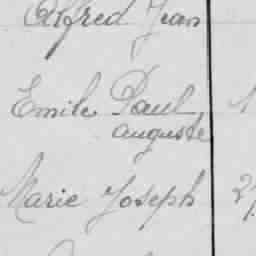 Alfred Jean
Emile Paul
auguste
Marie Joseph